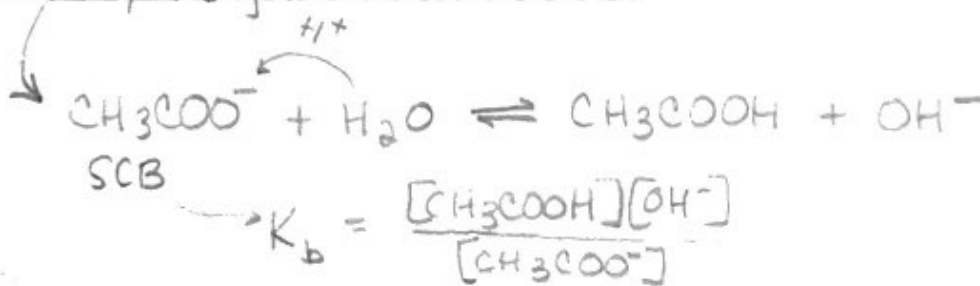 H+
CH3COO⁻ + H2O ⇌ CH3COOH + OH⁻
SCB
Kb = [CH3COOH][OH⁻] / [CH3COO⁻]